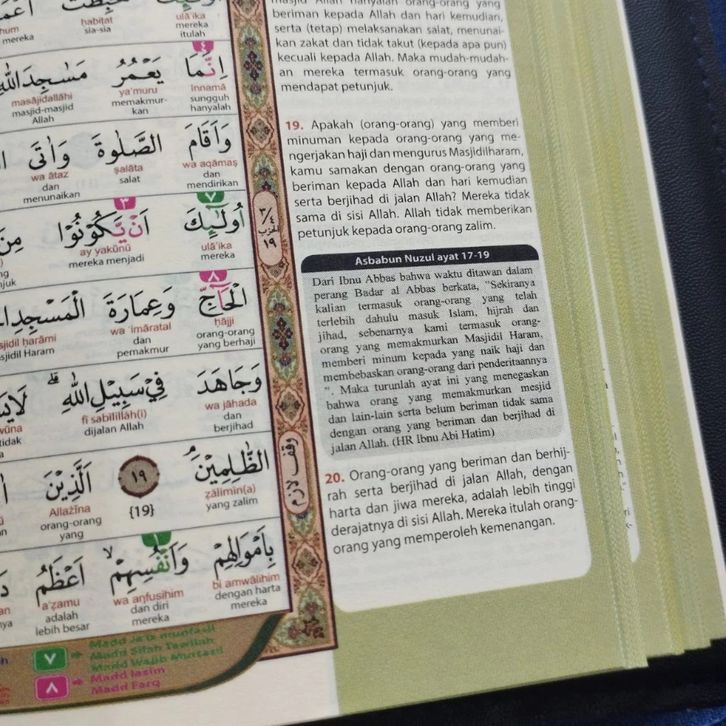 beriman kepada Allah dan hari kemudian,
serta (tetap) melaksanakan salat, menunai-
kan zakat dan tidak takut (kepada apa pun)
kecuali kepada Allah. Maka mudah-mudah-
an mereka termasuk orang-orang yang
mendapat petunjuk.
19. Apakah (orang-orang) yang memberi
minuman kepada orang-orang yang me-
ngerjakan haji dan mengurus Masjidilharam,
kamu samakan dengan orang-orang yang
beriman kepada Allah dan hari kemudian
serta berjihad di jalan Allah? Mereka tidak
sama di sisi Allah. Allah tidak memberikan
petunjuk kepada orang-orang zalim.
Asbabun Nuzul ayat 17-19
Dari Ibnu Abbas bahwa waktu ditawan dalam
perang Badar al Abbas berkata, "Sekiranya
kalian termasuk orang-orang yang telah
terlebih dahulu masuk Islam, hijrah dan
jihad, sebenarnya kami termasuk orang-
orang yang memakmurkan Masjidil Haram,
memberi minum kepada yang naik haji dan
membebaskan orang-orang dari penderitaannya
". Maka turunlah ayat ini yang menegaskan
bahwa orang yang memakmurkan mesjid
dan lain-lain serta belum beriman tidak sama
dengan orang yang beriman dan berjihad di
jalan Allah. (HR Ibnu Abi Hatim)
20. Orang-orang yang beriman dan berhij-
rah serta berjihad di jalan Allah, dengan
harta dan jiwa mereka, adalah lebih tinggi
derajatnya di sisi Allah. Mereka itulah orang-
orang yang memperoleh kemenangan.
ḥabiṭat ulā'ika
mereka sia-sia mereka
itulah
اِنَّمَا يَعْمُرُ مَسٰجِدَ اللّٰهِ
innamā ya'muru masājidallāhi
sungguh memakmur- masjid-masjid
hanyalah kan Allah
وَاَقَامَ الصَّلٰوةَ وَاٰتَى
wa aqāmaṣ ṣalāta wa ātaz
dan salat dan
mendirikan menunaikan
اُولٰۤىِٕكَ اَنْ يَّكُوْنُوْا مِنَ
ulā'ika ay yakūnū
mereka mereka menjadi
الْحَاۤجِّ وَعِمَارَةَ الْمَسْجِدِ
ḥājji wa 'imāratal ḥarāmi
orang-orang dan Haram
yang berhaji pemakmur
وَجَاهَدَ فِيْ سَبِيْلِ اللّٰهِ
wa jāhada fī sabīlillāh(i)
dan dijalan Allah tidak
berjihad
الظّٰلِمِيْنَ ١٩ اَلَّذِيْنَ
ẓālimīn(a) {19} Allażīna
yang zalim orang-orang
yang
بِاَمْوَالِهِمْ وَاَنْفُسِهِمْ اَعْظَمُ
bi amwālihim wa anfusihim a'ẓamu
dengan harta dan diri adalah
mereka mereka lebih besar
٣/٤
الحزب
١٩
وقف لازم
٧ Madd Ja'iz munfasil
Madd Silah Tawilah
Madd Wajib Muttasil
٨ Madd lazim
Madd Farq